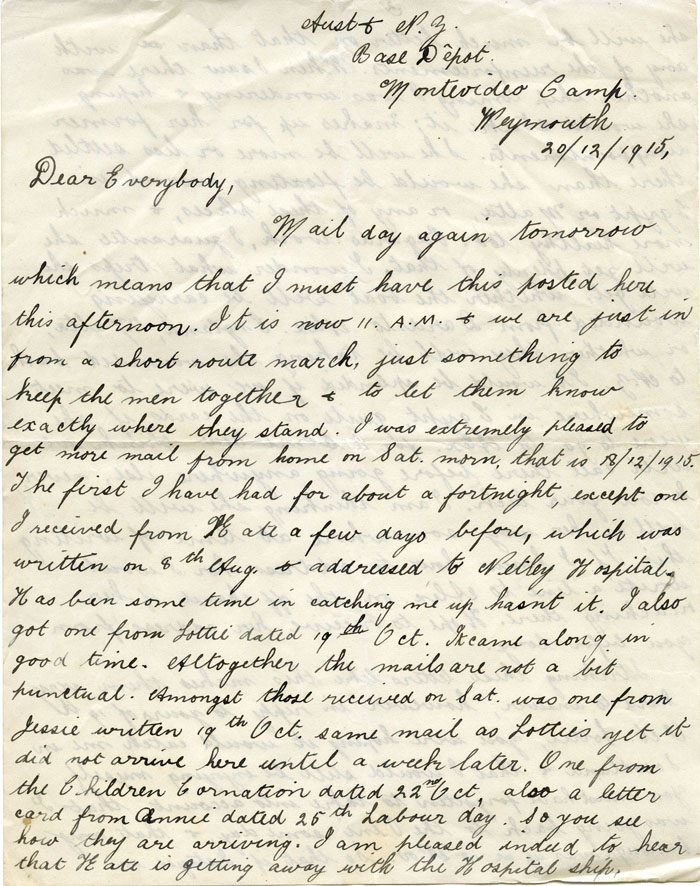 Aust & N.Z.
Base Dêpot.
Montevideo Camp.
Weymouth
20/12/1915,
Dear Everybody,
Mail day again tomorrow
which means that I must have this posted here
this afternoon. It is now 11. A.M. & we are just in
from a short route march, just something to
keep the men together & to let them know
exactly where they stand. I was extremely pleased to
get more mail from home on Sat. morn, that is 18/12/1915.
The first I have had for about a fortnight, except one
I received from Kate a few days before, which was
written on 8th Aug. & addressed to Netley Hospital.
Has been some time in catching me up hasnt it. I also
got one from Lottie dated 19th Oct. It came along in
good time. Altogether the mails are not a bit
punctual. Amongst those received on Sat. was one from
Jessie written 19th Oct. same mail as Lotties yet it
did not arrive here until a week later. One from
the Children Cornation dated 22nd Oct, also a letter
card from Annie dated 25th Labour day. So you see
how they are arriving. I am pleased indeed to hear
that Kate is getting away with the Hospital ship,